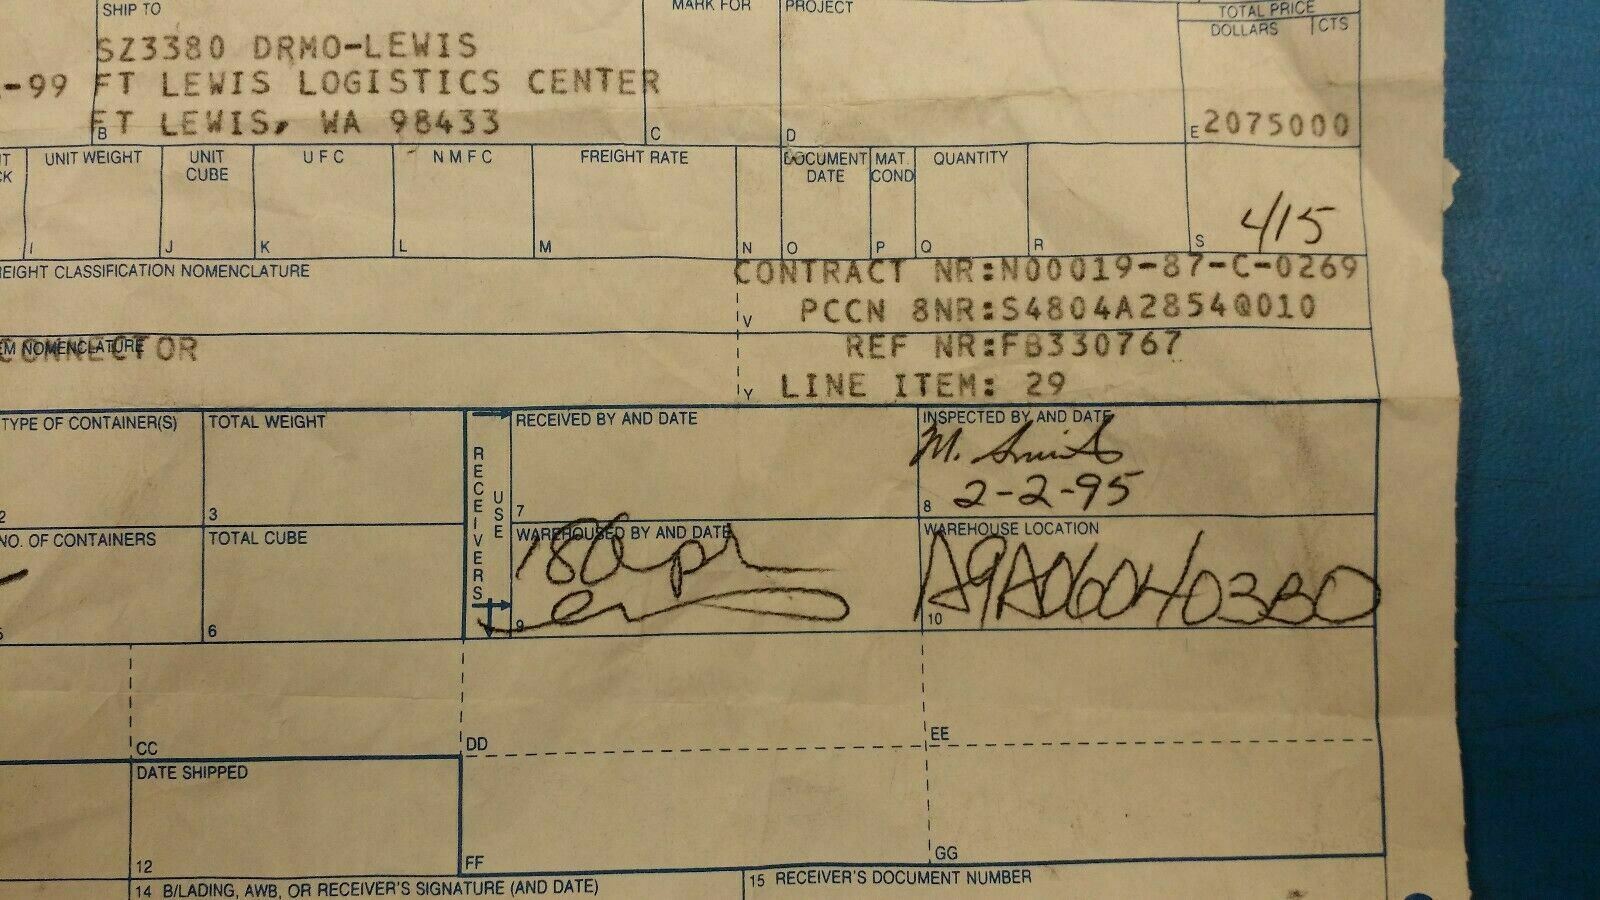 SHIP TO
MARK FOR
PROJECT
TOTAL PRICE
DOLLARS CTS
SZ3380 DRMO-LEWIS
-99 FT LEWIS LOGISTICS CENTER
FT LEWIS, WA 98433
B C D E 2075000
UNIT WEIGHT UNIT CUBE UFC NMFC FREIGHT RATE DOCUMENT DATE MAT. COND QUANTITY
4/15
I J K L M N O P Q R S
EIGHT CLASSIFICATION NOMENCLATURE
CONTRACT NR:N00019-87-C-0269
V PCCN 8NR:S4804A2854Q010
EM NOMENCLATURE
CONNECTOR
REF NR:FB330767
Y LINE ITEM: 29
TYPE OF CONTAINER(S)
TOTAL WEIGHT
RECEIVERS USE
RECEIVED BY AND DATE
INSPECTED BY AND DATE
M. Smith
2-2-95
2 3 7 8
NO. OF CONTAINERS
TOTAL CUBE
WAREHOUSED BY AND DATE
WAREHOUSE LOCATION
18 Apr
A9A060403BO
6 9 10
CC DD EE
DATE SHIPPED
12 FF GG
14 B/LADING, AWB, OR RECEIVER'S SIGNATURE (AND DATE)
15 RECEIVER'S DOCUMENT NUMBER